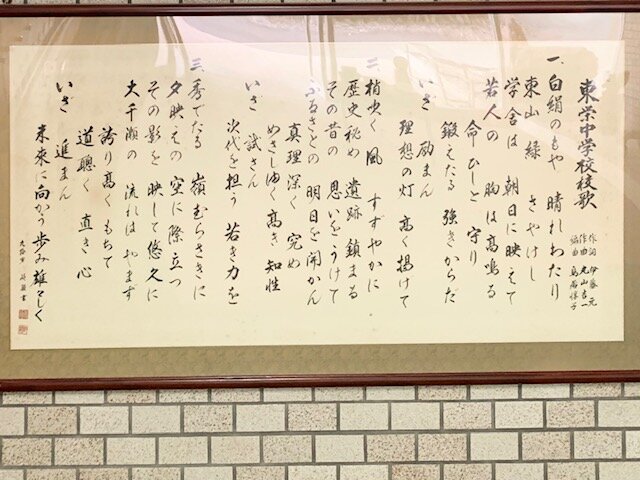 東栄中学校校歌
作詞 伊藤 元
作曲 丸山吉一
編曲 鳥居惇子
一、白絹のもや 晴れわたり
東山 緑 さやけし
学舎は 朝日に映えて
若人の 胸は高鳴る
命ひしと 守り
鍛えたる 強きからだ
いざ 励まん
理想の灯 高く揚げて
二、梢吹く 風 すずやかに
歴史秘め 遺跡鎮まる
その昔の 思いをうけて
ふるさとの 明日を開かん
真理深く 究め
めざしゆく高き 知性
いざ 試さん
次代を担う 若き力を
三、秀でたる 嶺むらさきに
夕映えの 空に際立つ
その影を 映して悠久に
大千瀬の 流れはやまず
誇り高く もちて
道聴く 直き心
いざ 進まん
未来に向かう 歩み雄々しく